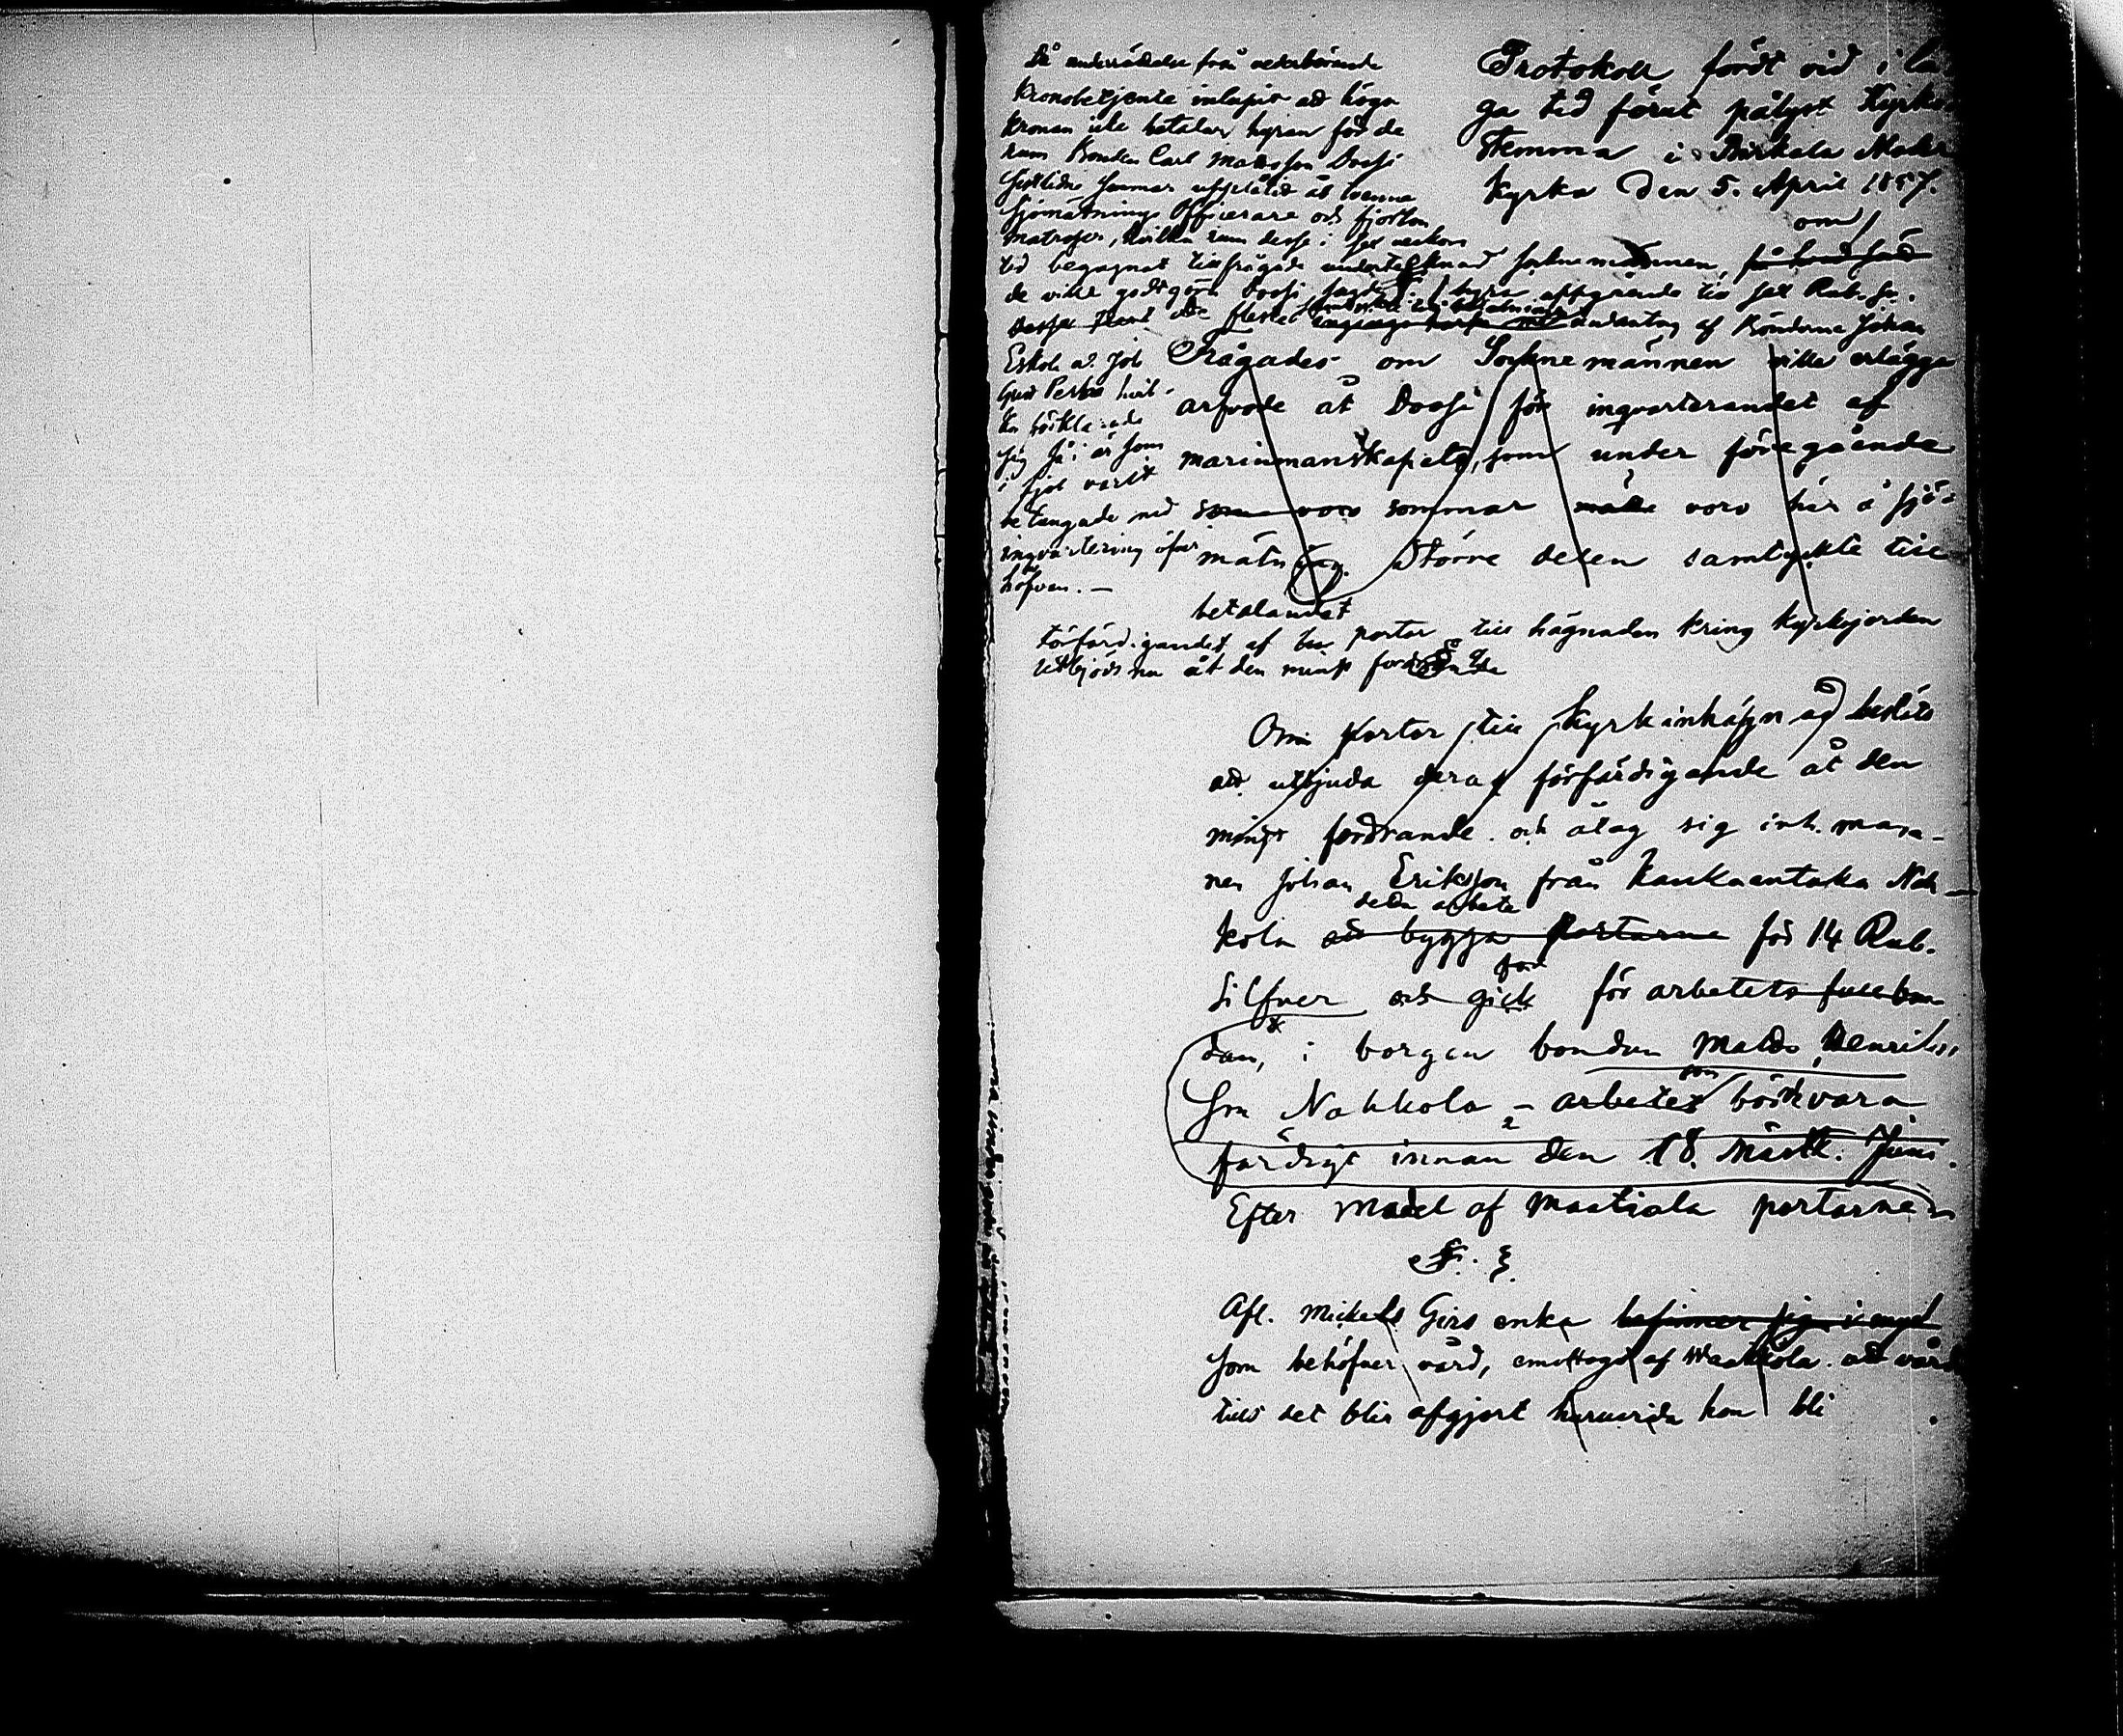 Protokoll fördt vid i la
ga tid förut pålyst Kyrko
stemma i Birkala Moder
Kyrka den 5. April 1857.
Då underrättelse från vederbörande
Kronobetjente inlupit att höga
Kronan icke betalar hyran för de
rum Bonden Carl Mattsson Doosi
sistlidne sommar upplåtit åt tvenne
sjömätnings Officerare och fjorton
matroser, hvilka rum desse i sex veckors
tid begagnat tillfrågade undertecknad socknemännen, om
de ville godtgöra Doosi hyra uppgående till sex Rub. S.
de fleste undantag af Bönderna Johan
Eskola o.
Girs Perttu hvil-
ka förklarade
sig så i år som
i fjol varit
betungade med
inqvartering öfver
höfvan. —
Frågades om Sockne männen ville erlägga
arfvode åt Doosi för inqvarterandet af
marinmanskapets, som under föregående
som voro sommar voro här å sjö-
mätning. Större delen samtyckte till
betalandet
Förfärdigandet af portar till hägnaden kring Kyrkojorden
utbjöds nu åt den minst fordrande
Om portar till Kyrkinhägnad beslöts
att utbjuda deras förfärdigande åt den
minst fordrande och åtag sig inh. man-
nen Johan Eriksson från Kaukaantaka Nok-
detta arbete
kola att bygga Portarne för 14 Rub.
Silfver och gick för arbetets fullbor
dan, i borgen bonden Matts Henriks
son Nokkola – arbetet som bör vara
färdigt innan den 18. Juni.
Efter modell af Maatiala portarne
§.
Afl. Mickels Girs enka befinner sig i
som behöfver vård, emottogs af att vård
tills det blir afgjort huruvida hon bli